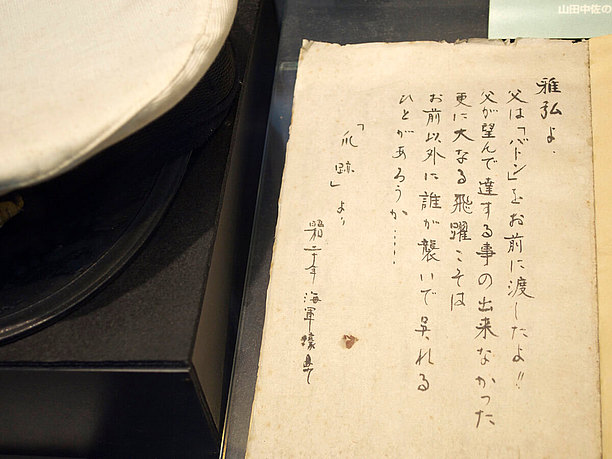 山田中佐の
雅弘よ.
父は「バトン」をお前に渡したよ!!
父が望んで達する事の出来なかった
更に大なる飛躍こそは
お前以外に誰が襲いで呉れる
ひとがあろうか……
「爪跡」より
昭二十年 海軍壕ニて